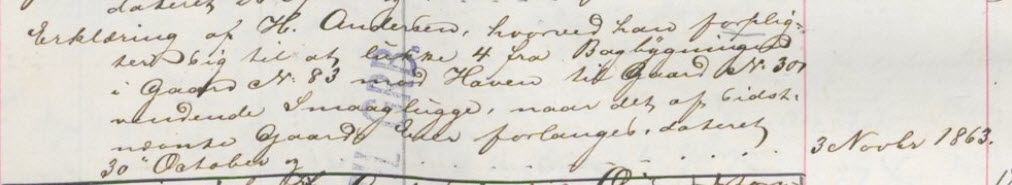 Erklæring af H. Andersen, hvorved han forplig-
ter sig til at lukke 4 fra Bagbygningen
i Gaard No 83 mod Haven til Gaard No 301
vendende Smaaglugge, naar det af sidst-
nævnte Gaards Eier forlanges, dateret
30te October og 3 Novbr 1863.